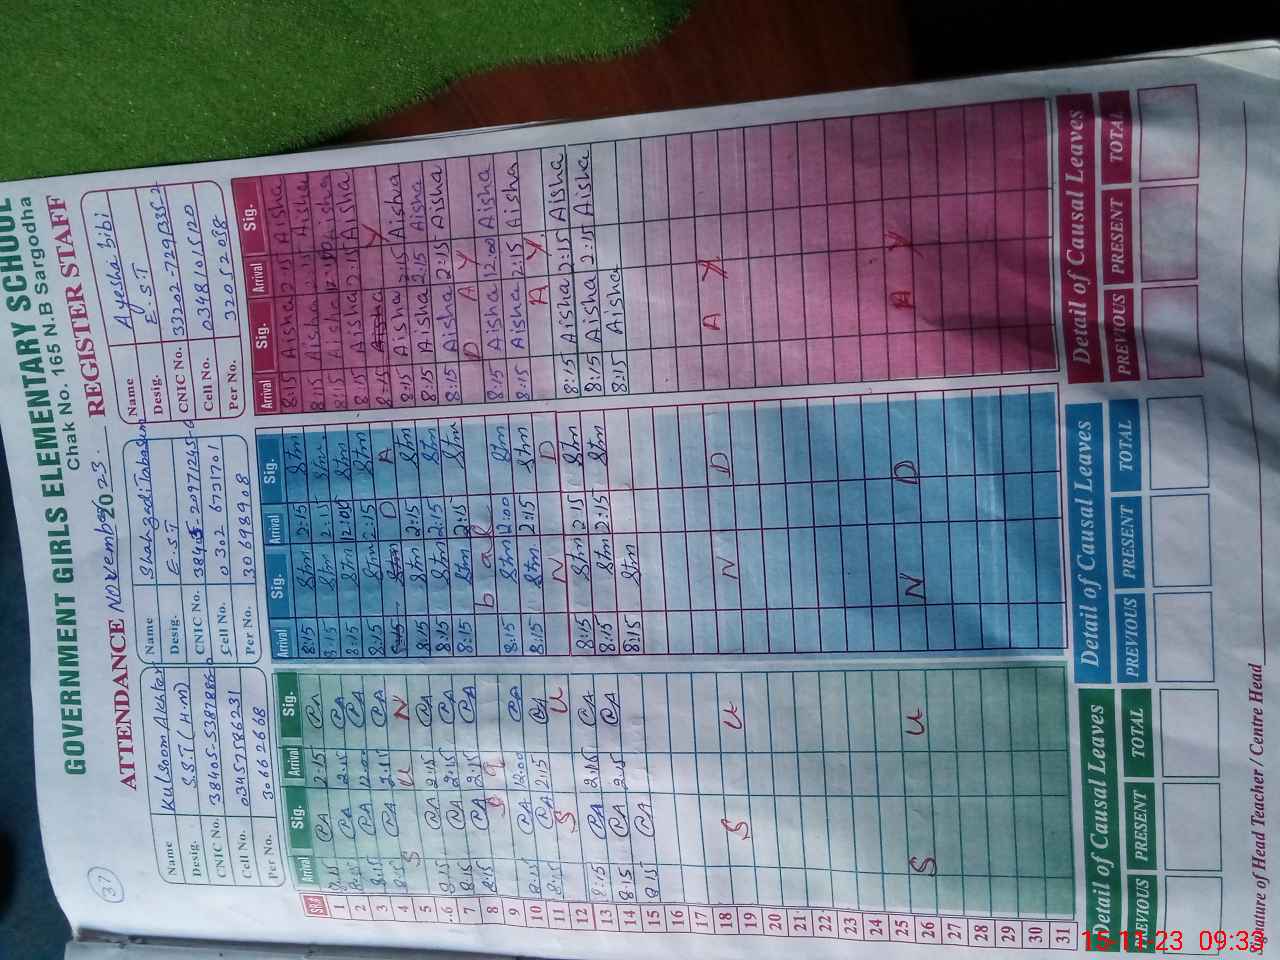 37
GOVERNMENT GIRLS ELEMENTARY SCHOOL
Chak No. 165 N.B Sargodha
ATTENDANCE November 2023. REGISTER STAFF
Name Kulsoom Akhter
Desig. S.S.T (H.M)
CNIC No.
Cell No. 03457586231
Per No. 30662668
Name Shahzadi Tabasum
Desig. E.S.T
CNIC No.
Cell No. 0302 6721701
Per No. 30698908
Name Ayesha bibi
Desig. E.S.T
CNIC No.
Cell No. 03481015120
Per No. 32052058
SR# Arrival Sig. Arrival Sig. Arrival Sig. Arrival Sig. Arrival Sig. Arrival Sig.
1 8:15 2:15 8:15 Stm 2:15 Stm 8:15 Aisha 2:15 Aisha
2 8:15 2:15 8:15 Stm 2:15 Stm 8:15 Aisha 2:15 Aisha
3 8:15 12:00 8:15 Stm 12:00 Stm 8:15 Aisha 12:00 Aisha
4 8:15 2:15 8:15 Stm 2:15 Stm 8:15 Aisha 2:15 Aisha
5 S U N D A Y
6 8:15 2:15 8:15 Stm 2:15 Stm 8:15 Aisha 2:15 Aisha
7 8:15 2:15 8:15 Stm 2:15 Stm 8:15 Aisha 2:15 Aisha
8 8:15 2:15 8:15 Stm 2:15 Stm 8:15 Aisha 2:15 Aisha
9 D A Y
10 8:15 12:00 8:15 Stm 12:00 Stm 8:15 Aisha 12:00 Aisha
11 8:15 2:15 8:15 Stm 2:15 Stm 8:15 Aisha 2:15 Aisha
12 S U N D A Y
13 8:15 2:15 8:15 Stm 2:15 Stm 8:15 Aisha 2:15 Aisha
14 8:15 2:15 8:15 Stm 2:15 Stm 8:15 Aisha 2:15 Aisha
15 8:15 8:15 Stm 8:15 Aisha
16
17
18
19 S U N D A Y
20
21
22
23
24
25
26 S U N D A Y
27
28
29
30
31
Detail of Causal Leaves Detail of Causal Leaves Detail of Causal Leaves
PREVIOUS PRESENT TOTAL PREVIOUS PRESENT TOTAL PREVIOUS PRESENT TOTAL
Signature of Head Teacher / Centre Head
15-11-23 09:33